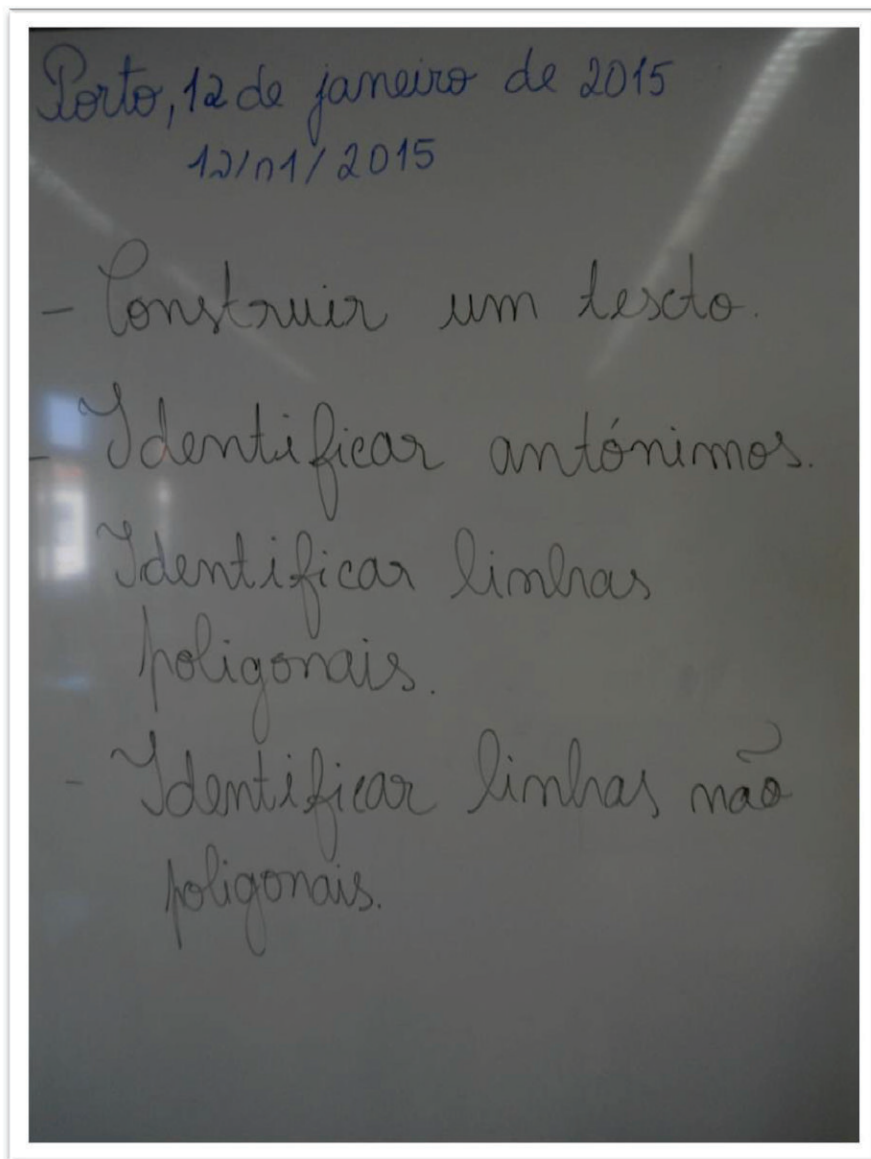 Porto, 12 de janeiro de 2015
12/01/2015
- Construir um texto.
- Identificar antónimos.
Identificar linhas
poligonais.
- Identificar linhas não
poligonais.